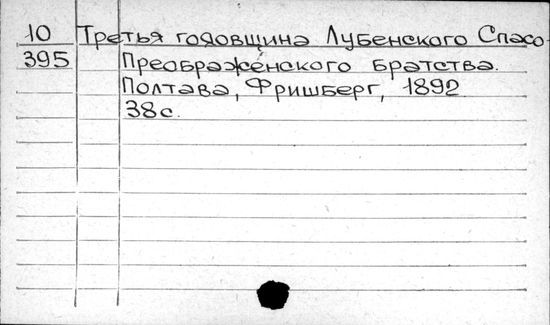 10 Третья годовщина Лубенского Спасо-
395 Преображенского Братства.
Полтава, Фришберг, 1892
38с.